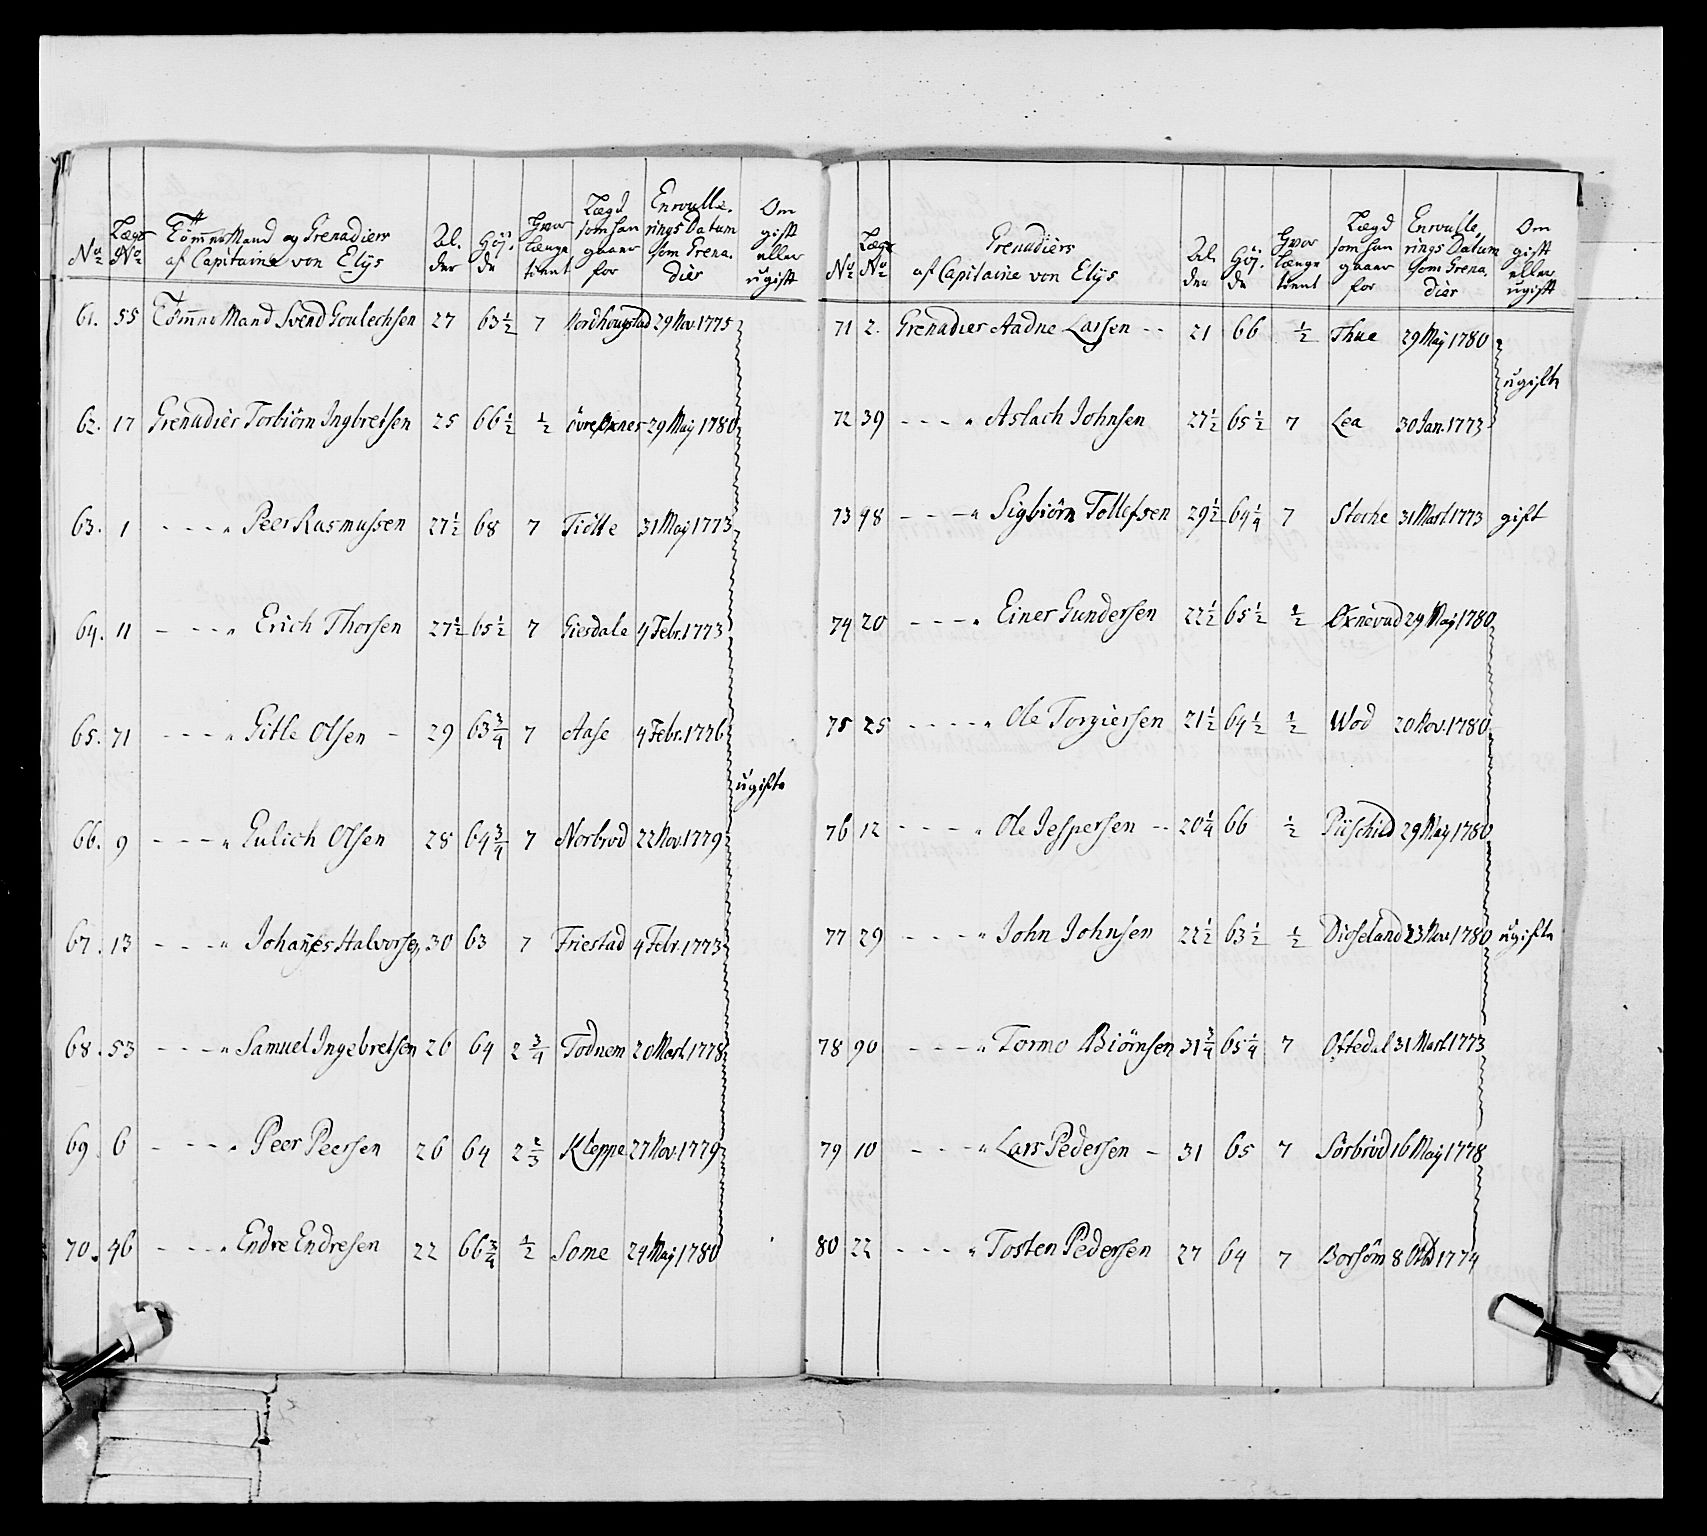 No Lægs No Tømmer Mand og Grenadierer af Capitaine von Elÿs Al. der Höÿ. de Hvor længe tient Lægd som han gaaer for Enroulle. rings Datum som Grena. dier Om gift eller ugift
61. 55 Tømmer Mand Svend Goulechsen 27 63½ 7 Nordhougstad 29 Nov. 1775
62. 17 Grenadier Torbiörn Ingbretsen 25 66½ ½ övre Oxnes 29 Maÿ 1780
63. 1 - - - - " Peer Rasmussen 27½ 68 7 Tiötte 31 Maÿ 1773
64. 11 - - - - " Erich Thorsen 27½ 65½ 7 Giesdale 4 Febr. 1773
65. 71 - - - - " Gitle Olsen - 29 63¾ 7 Aase 4 Febr. 1776
ugifte
66. 9 - - - - " Eulich Olsen 28 64¾ 7 Norbrod 22 Nov. 1779
67. 13 - - - - " Johannes Halvorsen 30 63 7 Friestad 4 Febr. 1773
68. 53 - - - - " Samuel Ingebretsen 26 64 2¾ Todnem 20 Mart. 1778
69 6 - - - - " Peer Peersen 26 64 2⅔ Kleppe 27 Nov. 1779
70. 46 - - - - " Endre Endresen 22 66¾ ½ Some 29 Maÿ 1780
No Lægs No Grenadiers af Capitaine von Elÿs Al. der Höÿ. de Hvor længe tient Lægd som han gaaer for Enroulle, rings Datum som Grena. dier Om gift eller ugifft
71 2. Grenadier Aadne Larsen - - 21 66 ½ Thue 29 Maÿ 1780
ugifte
72 39 - - - - " Aslach Johnsen 27½ 65½ 7 Lea 30 Jan. 1773
73 98 - - - - " Sigbiörn Tollefsen 29½ 64¼ 7 Stoche 31 Mart. 1773 gift
74 20 - - - - " Einer Gundersen 22½ 65½ ½ Oxnevad 29 Maÿ 1780
75 25 - - - - " Ole Torgiersen 21½ 64½ ½ Wod 20 Nov. 1780
76 12 - - - - " Ole Jespersen - - 20¼ 66 ½ 29 Maÿ 1780
77 29 - - - - " John Johnsen 22½ 63½ ½ 23 Nov. 1780 ugifte
78 90 - - - - " Tormo Biörnsen 31¾ 65¼ 7 Oftedal 31 Mart. 1773
79 10 - - - - " Lars Pedersen - 31 65 7 Sörbröd 16 Maÿ 1778
80 22 - - - - " Tosten Pedersen 27 64 7 Borsöm 8 1774